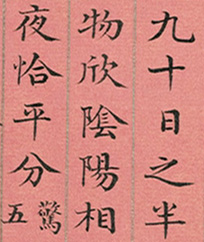 九十日之半
物欣陰陽相
夜恰平分
驚
五